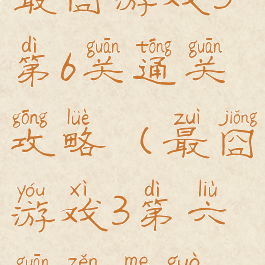 最囧游戏3
dì guān tōng guān
第6关通关
gōng lüè zuì jiǒng
攻略(最囧
yóu xì dì liù
游戏3第六
guān zěn me guò